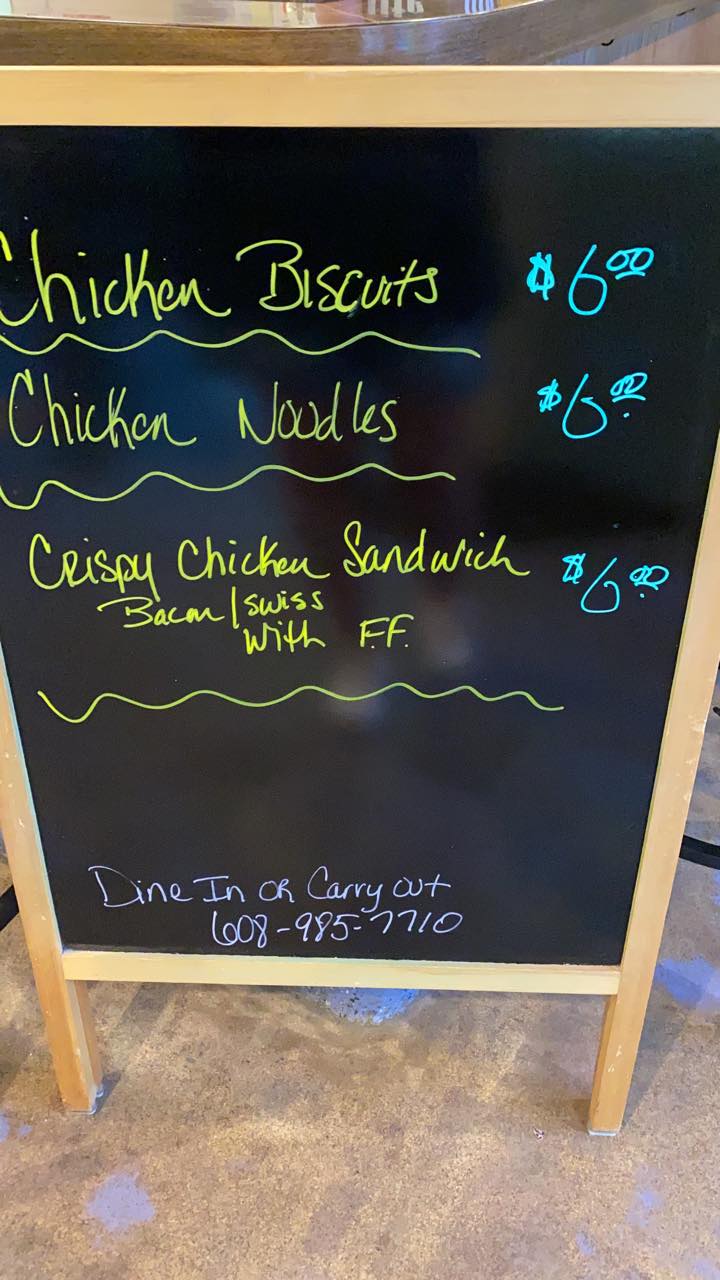 Chicken Biscuits $6.00
Chicken Noodles $6.00
Crispy Chicken Sandwich $6.00
Bacon/Swiss
With F.F.
Dine In or Carry out
608-985-7710